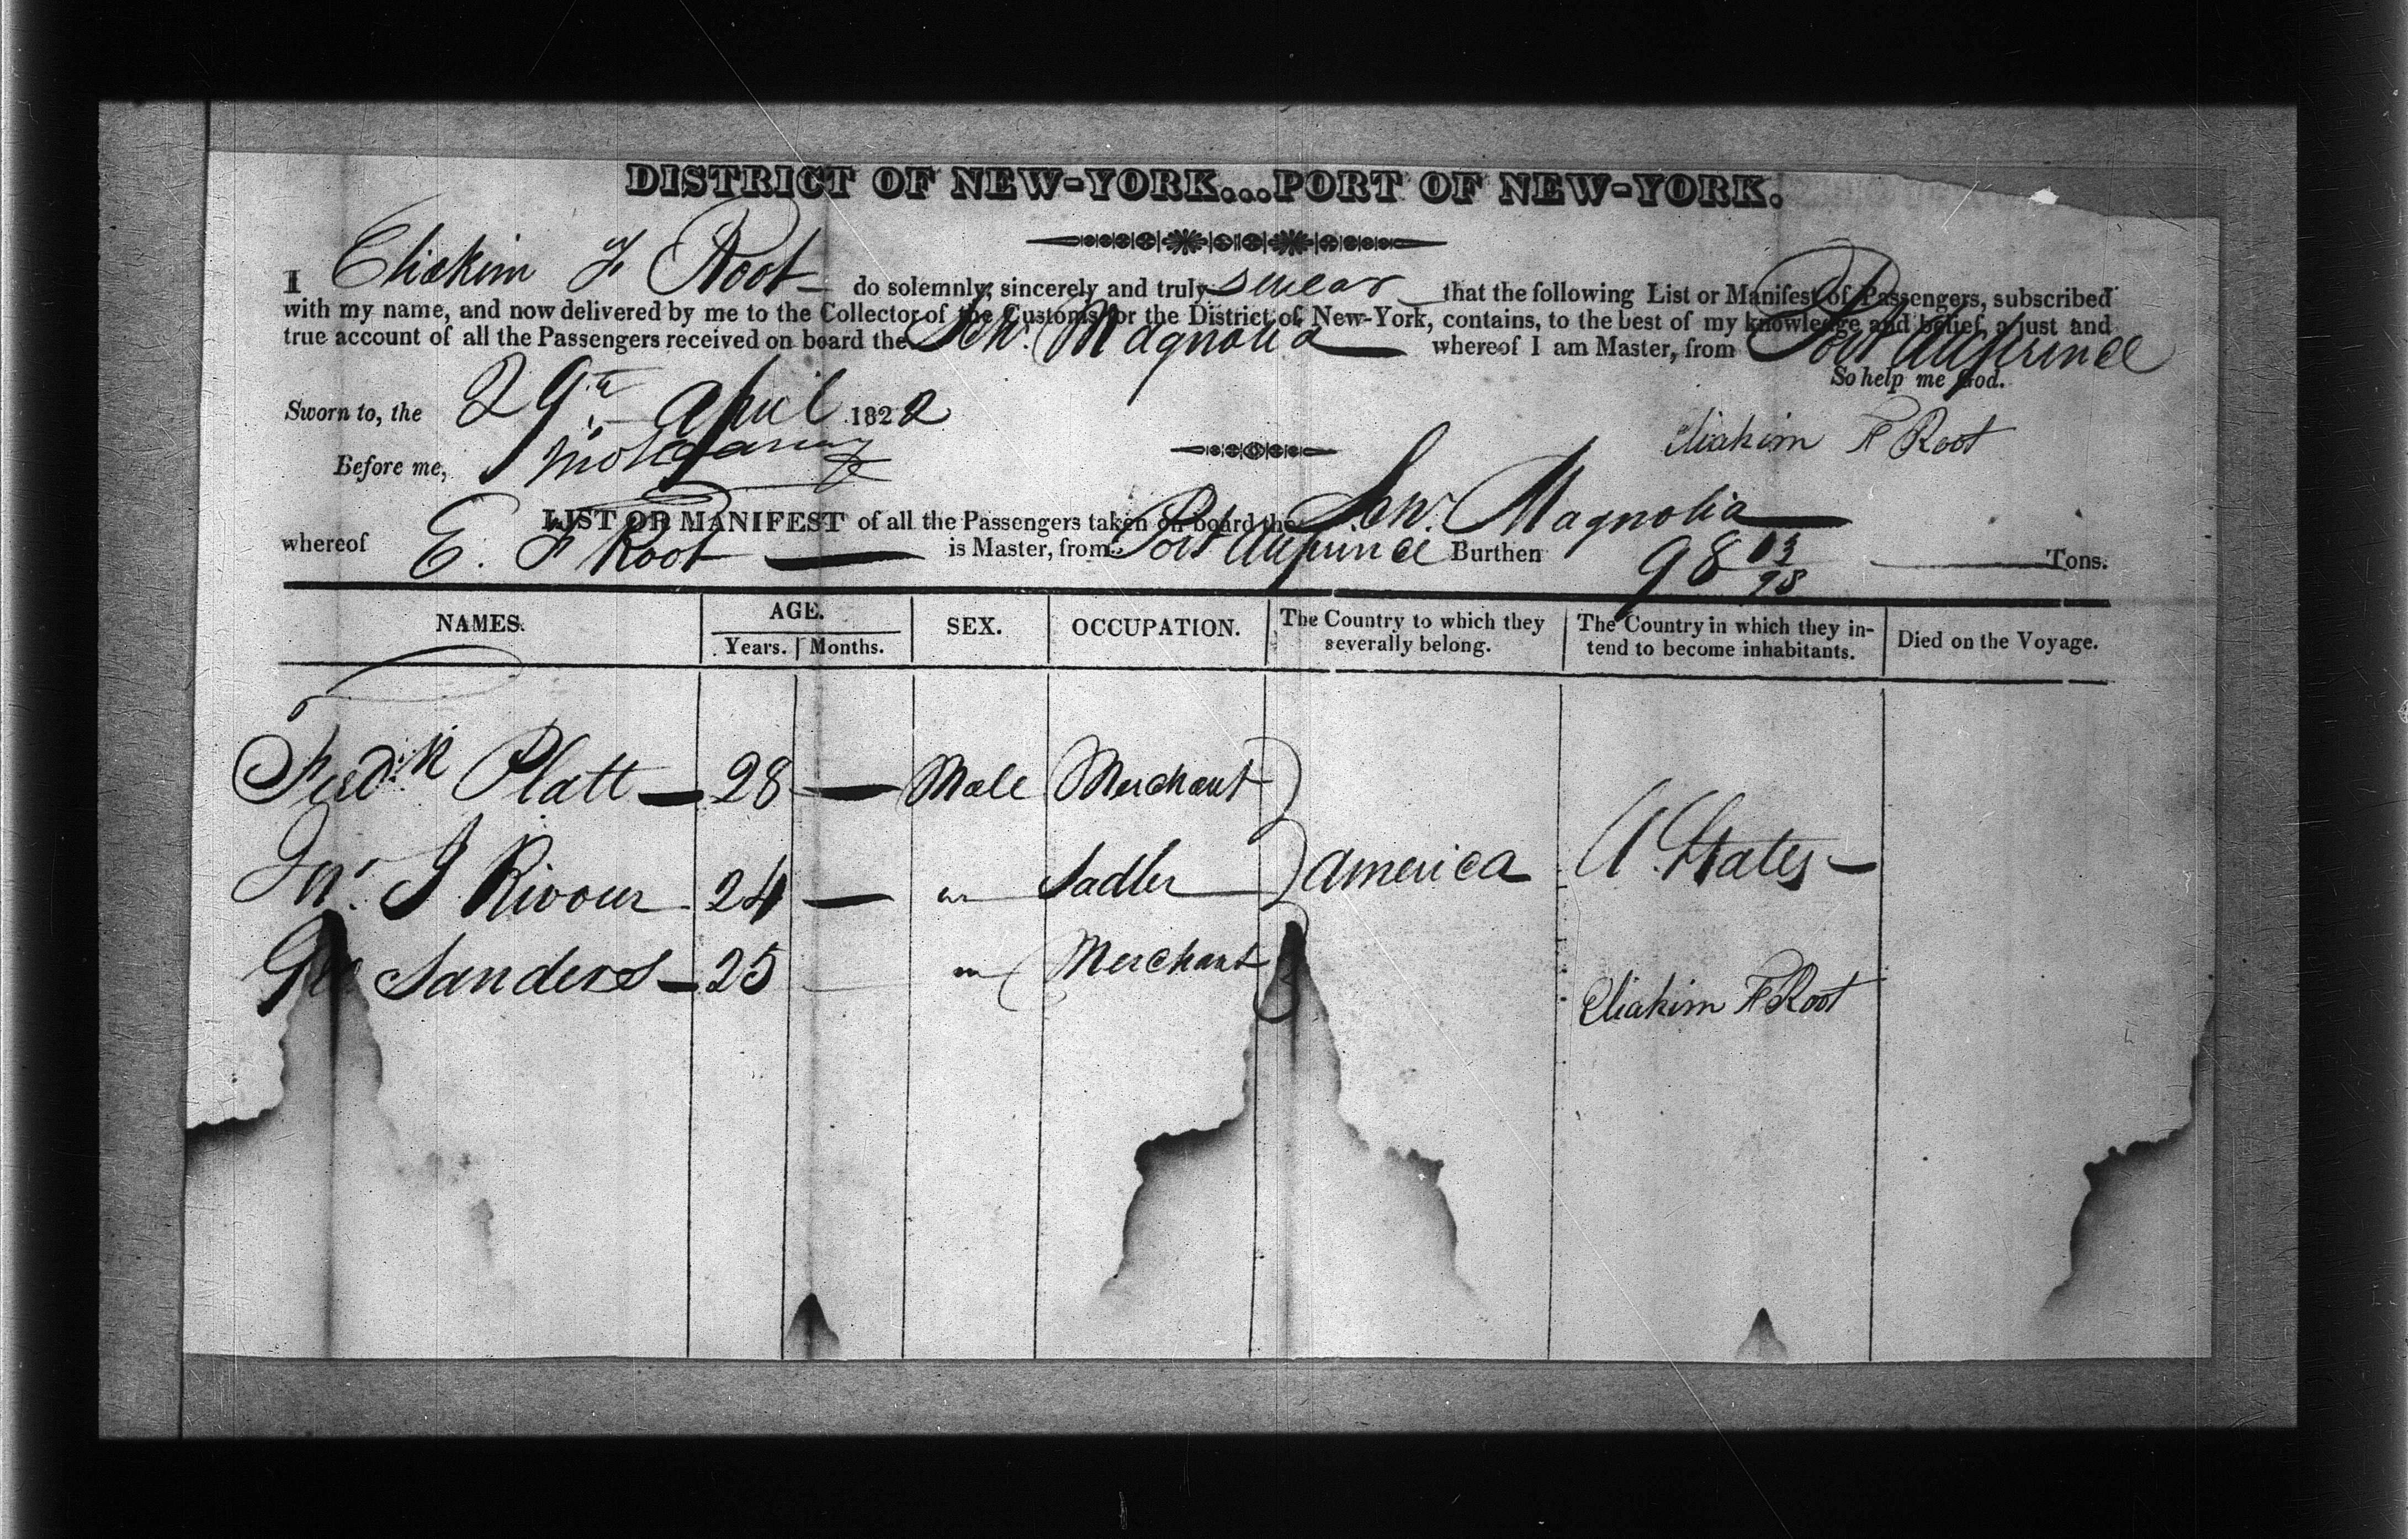 DISTRICT OF NEW-YORK...PORT OF NEW-YORK.
I Eliakim F Root do solemnly, sincerely and truly swear that the following List or Manifest of Passengers, subscribed
with my name, and now delivered by me to the Collector of the Customs for the District of New-York, contains, to the best of my knowledge and belief, a just and
true account of all the Passengers received on board the Schr. Magnolia whereof I am Master, from Port au prince
So help me God.
Sworn to, the 29th April 1822
Eliakim F Root
Before me,
LIST OR MANIFEST of all the Passengers taken on board the Schr. Magnolia
whereof E. F Root is Master, from Port au prince Burthen 98 03/95 Tons.
NAMES. AGE. SEX. OCCUPATION. The Country to which they severally belong. The Country in which they intend to become inhabitants. Died on the Voyage.
Years. Months.
Fredk Platt 28 — Male Merchant
Jno. J Rivour 24 — " Sadler America U. States
Geo Sanders 25 " Merchant
Eliakim F Root